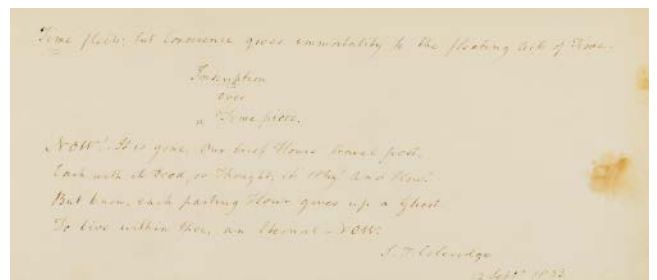 Time fleets: but Conscience gives immortality to the fleeting Acts of Time.
Inscription
over
a Time piece.
NOW! It is gone. Our brief Hours travel post,
Each with it's Deed, or Thought, it's Why? and How?
But know, each parting Hour gives up a Ghost
To live within thee, an Eternal NOW!
S. T. Coleridge
12 Sept.r 1833.